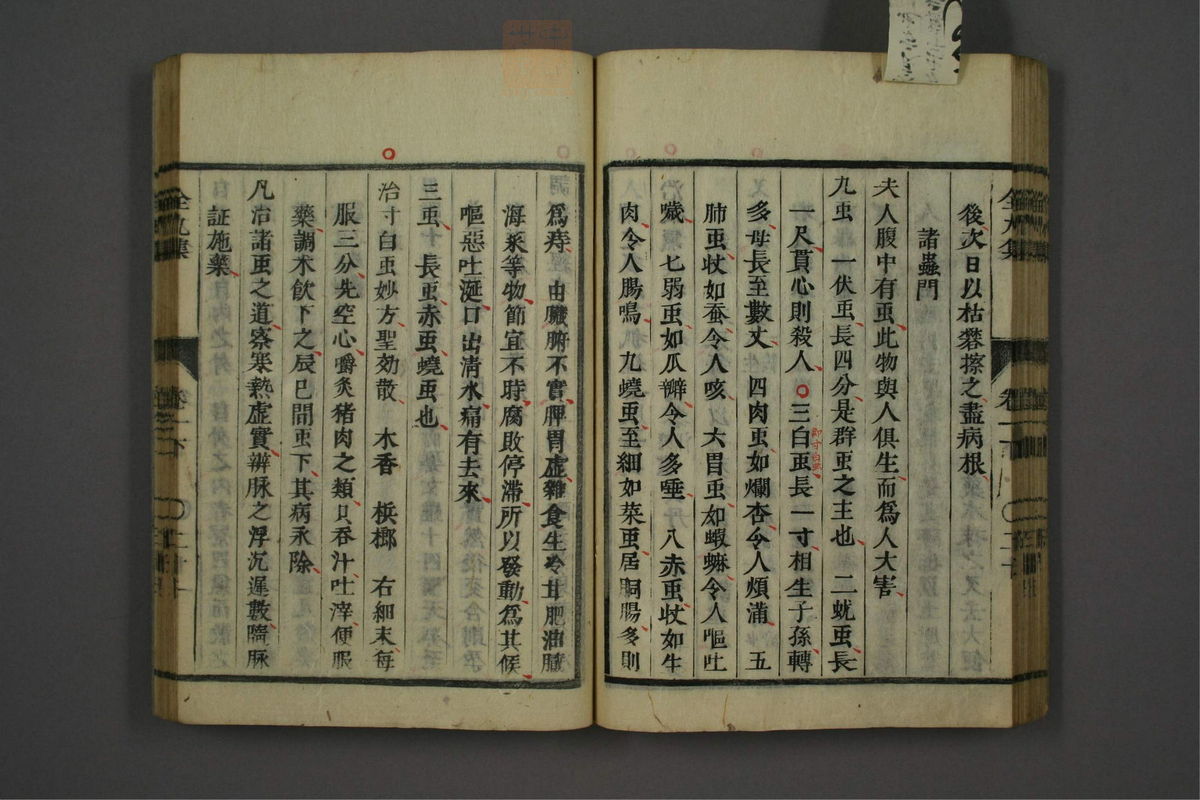 後次日以枯礬擦之盡病根
諸蟲門
夫人腹中有䖝此物與人俱生而爲人大害
九䖝 一伏䖝長四分是群䖝之主也 二蚘䖝長
一尺貫心則殺人 三白䖝長一寸相生子孫轉
即寸白䖝
多母長至數丈 四肉䖝如爛杏令人煩滿 五
肺䖝㹜如蚕令人咳 六胃䖝如蝦蟆令人嘔吐
噦 七弱䖝如瓜瓣令人多唾 八赤䖝㹜如生
肉令人腸鳴 九蟯䖝至細如菜䖝居胴腸多則
爲痔 由臟腑不實脾胃虛雜食生冷甘肥油膩
海菜等物節宜不時腐敗停滯所以發動爲其候
嘔惡吐涎口出清水痛有去來
三䖝 長䖝赤䖝蟯䖝也
治寸白䖝妙方聖効散 木香 梹榔 右細末每
服三分先空心嚼炙猪肉之類只吞汁吐滓便服
藥調木飲下之辰巳間䖝下其病永除
凡治諸䖝之道察寒熱虛實辨脉之浮沉遲數隨脉
証施藥
全九集
卷一下
全九集
卷一下